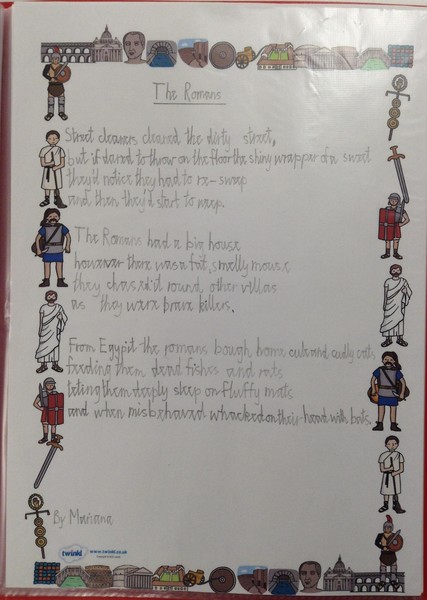 The Romans
Street cleaners cleared the dirty street,
but if dared to throw on the floor the shiny wrapper of a sweet
they'd notice they had to re-sweep
and then they'd start to weep.
The Romans had a big house
however there was a fat, smelly mouse
they chased it round other villas
as they were brave killers.
From Egypit the romans bough home cute and cudly cats
feeding them dead fishes and rats
leting them deeply sleep on fluffy mats
and when misbehaved whacked on their head with bats.
By Mariana
twinkl www.twinkl.co.uk